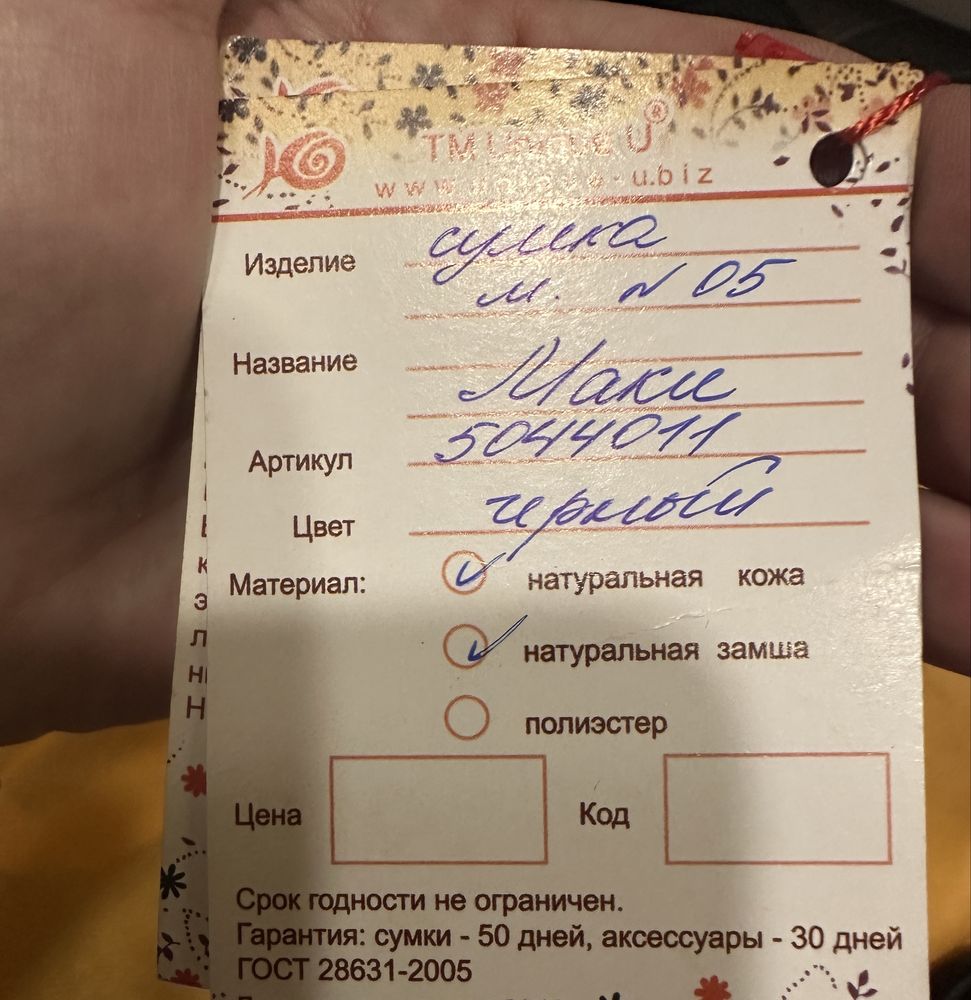 ТМ Unique U®
www.unique-u.biz
Изделие сумка
м. № 05
Название Маки
Артикул 5044011
Цвет черный
Материал: натуральная кожа
натуральная замша
полиэстер
Цена Код
Срок годности не ограничен.
Гарантия: сумки - 50 дней, аксессуары - 30 дней
ГОСТ 28631-2005